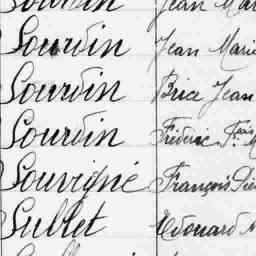 Sourdin Jean Mar
Sourdin Jean Marie
Sourdin Brice Jean
Sourdin Fréderic Fçois M
Souvigné François Pie
Sublet Edouard